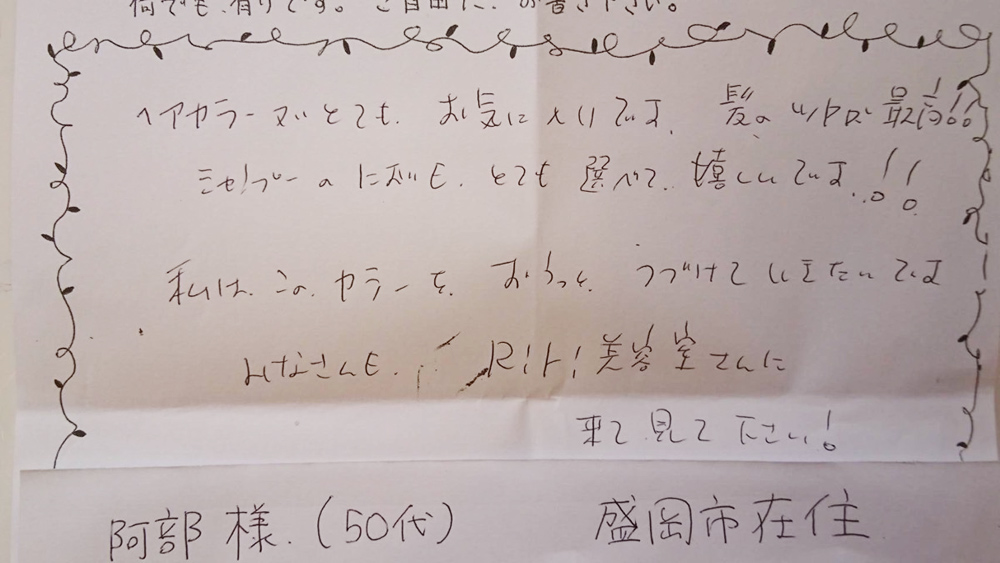 何でも、有りです。ご自由に、お書き下さい。
ヘアカラーがとても、お気に入りです。髪のツヤが最高!!
ミャンプーのにおいも、とても選べて、嬉しいです。!!
私は、この、カラーを、ずっと、つづけていきたいです
みなさんも、RiRi美容室さんに
来て見て下さい!
阿部様.(50代) 盛岡市在住